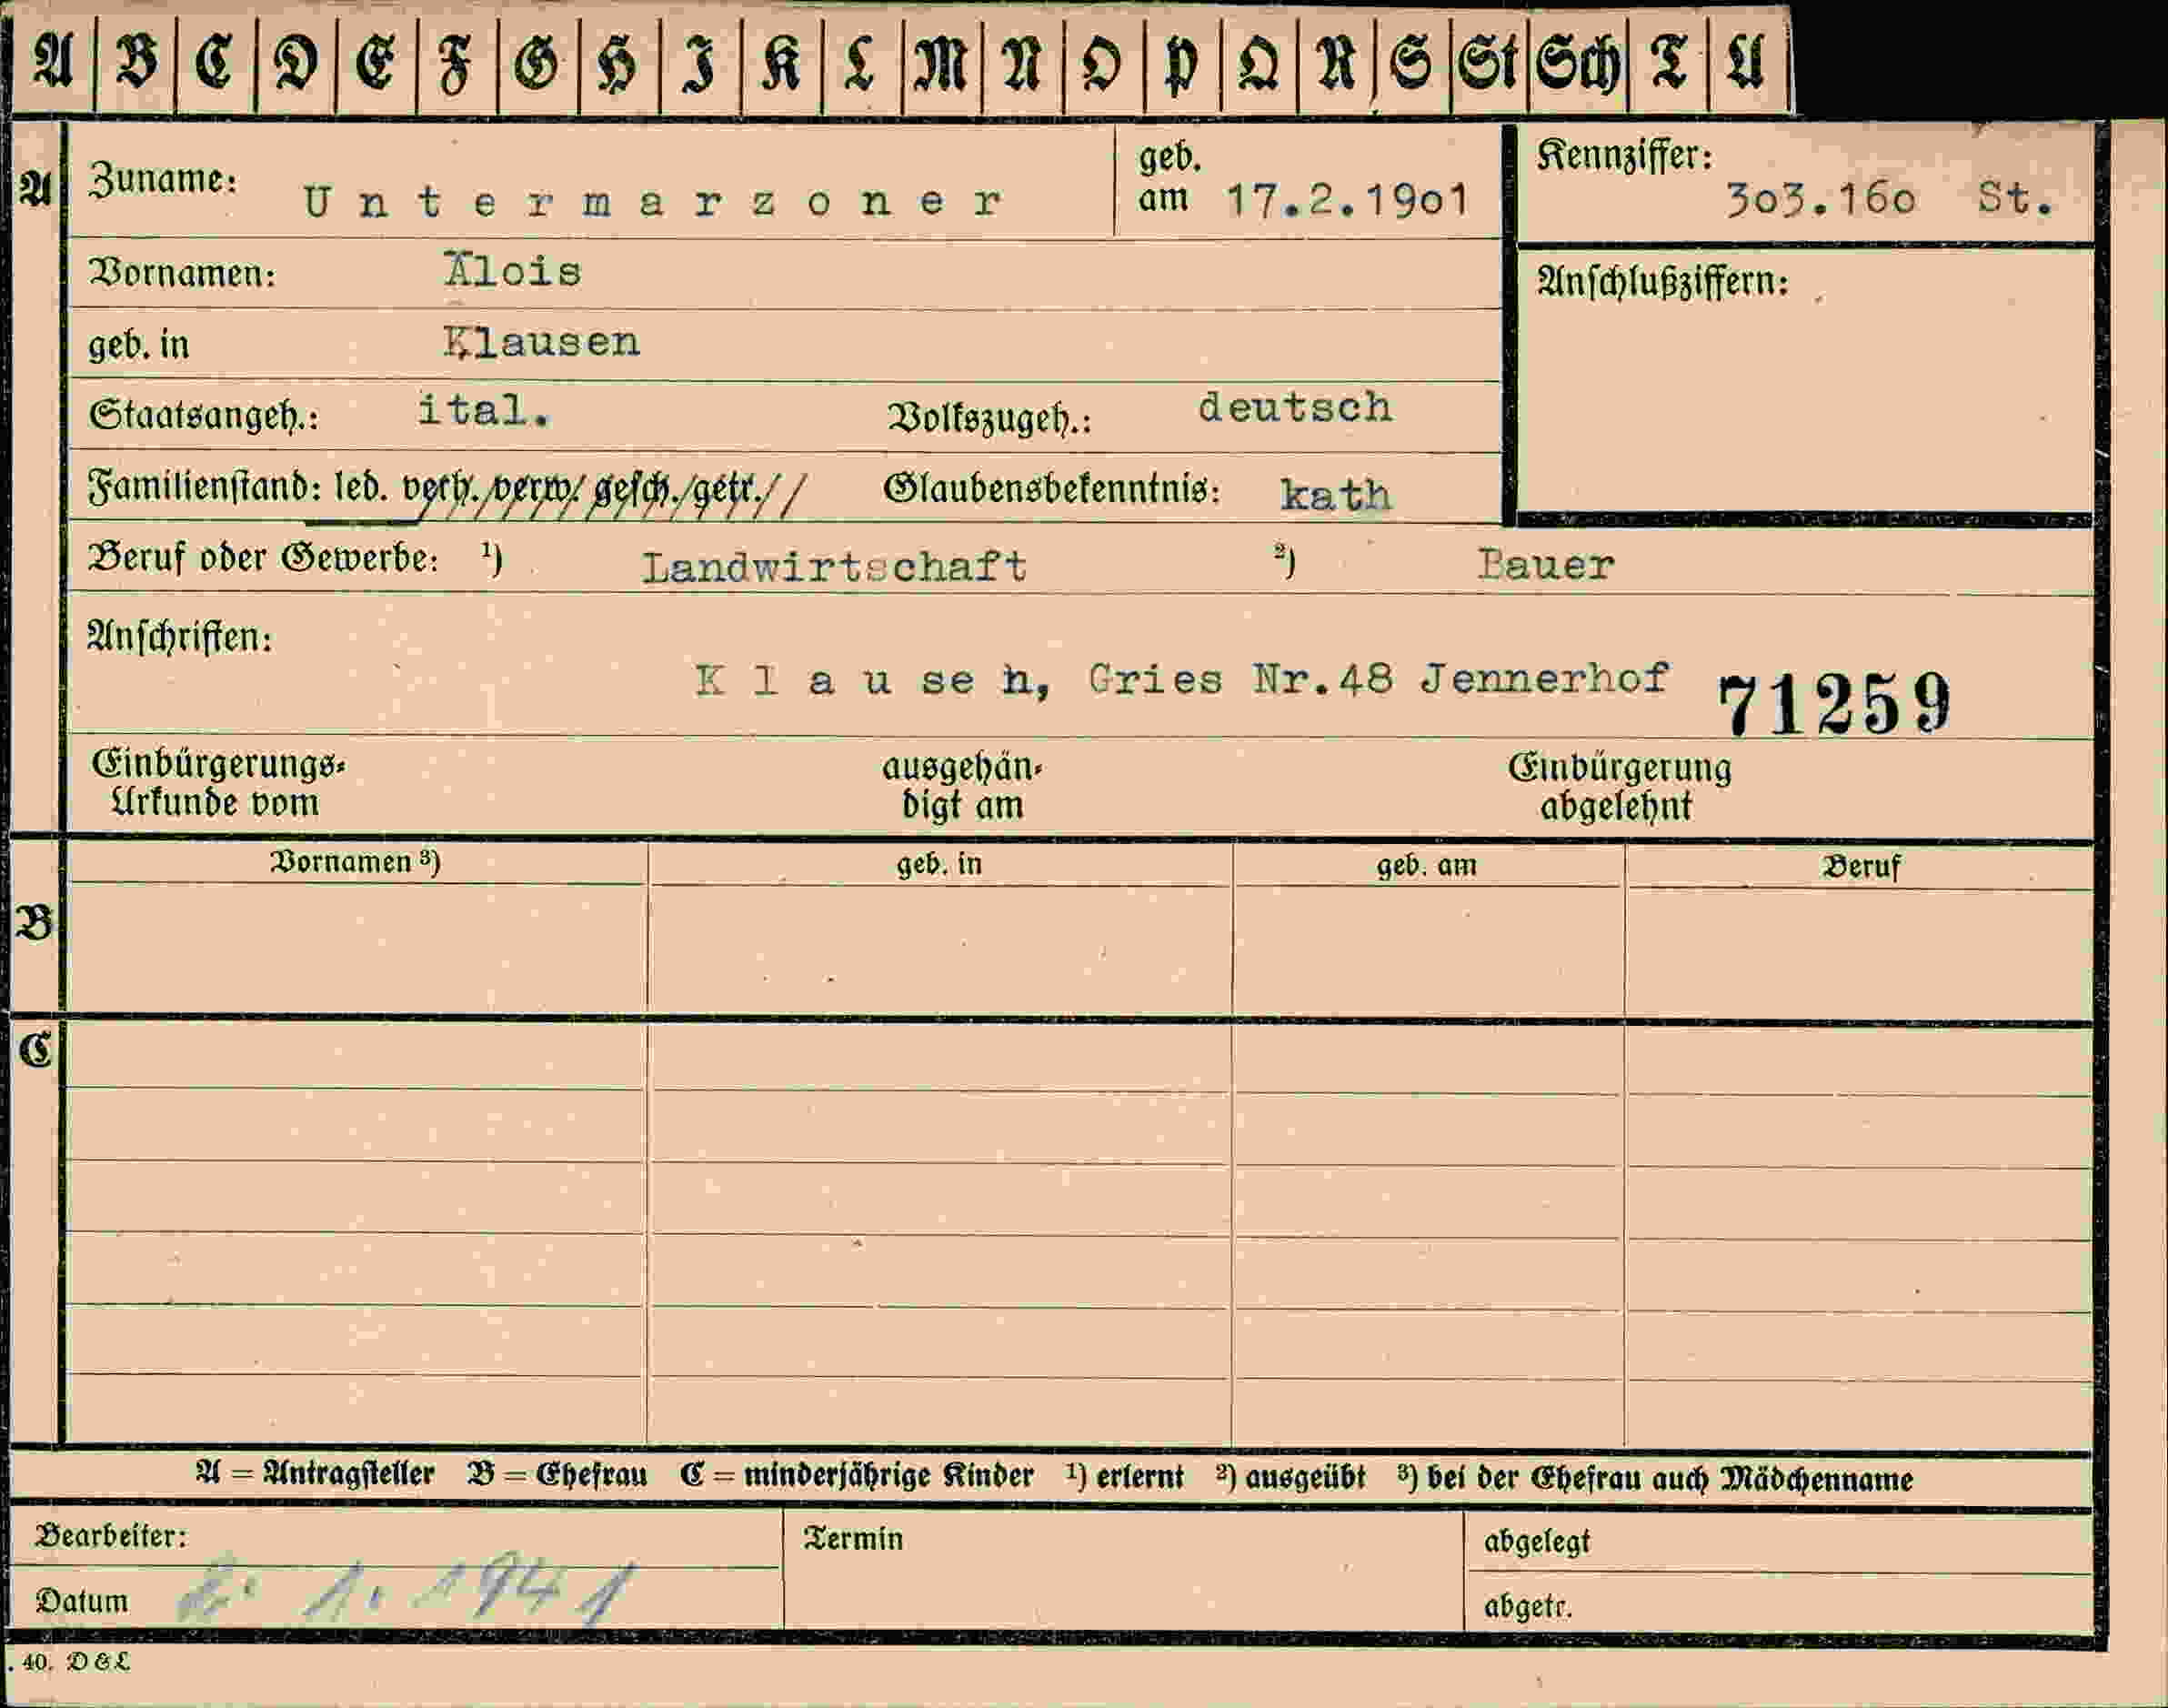 A B C D E F G H I K L M N O P Q R S St Sch T U
A Zuname: Untermarzoner geb. am 17.2.19o1 Kennziffer: 3o3.16o St.
Vornamen: Alois Anschlußziffern:
geb. in Klausen
Staatsangeh.: ital. Volkszugeh.: deutsch
Familienstand: led. verh./verw./gesch./getr.// Glaubensbekenntnis: kath
Beruf oder Gewerbe: 1) Landwirtschaft 2) Bauer
Anschriften:
Klausen, Gries Nr.48 Jennerhof 71259
Einbürgerungs- ausgehän- Einbürgerung
Urkunde vom digt am abgelehnt
Vornamen 3) geb. in geb. am Beruf
B
C
A = Antragsteller B = Ehefrau C = minderjährige Kinder 1) erlernt 2) ausgeübt 3) bei der Ehefrau auch Mädchenname
Bearbeiter: Termin abgelegt
Datum 1. 1941 abgetr.
. 40. D & L